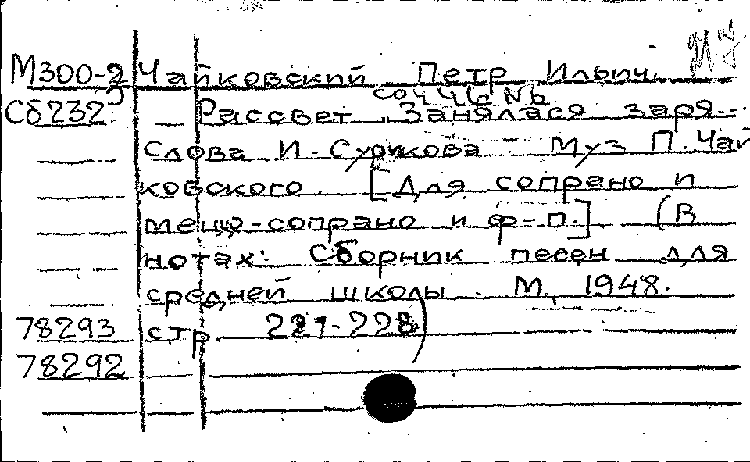 М300-2 Чайковский Петр Ильич.
соч 46 №6
Сб232 — Рассвет. Занялася заря..
Слова И. Сурикова — Муз П. Чай
ковского. [Для сопрано и
меццо-сопрано и ф-п.] (В
нотах: Сборник песен для
средней школы. М, 1948.
78293 стр. 221-228)
78292